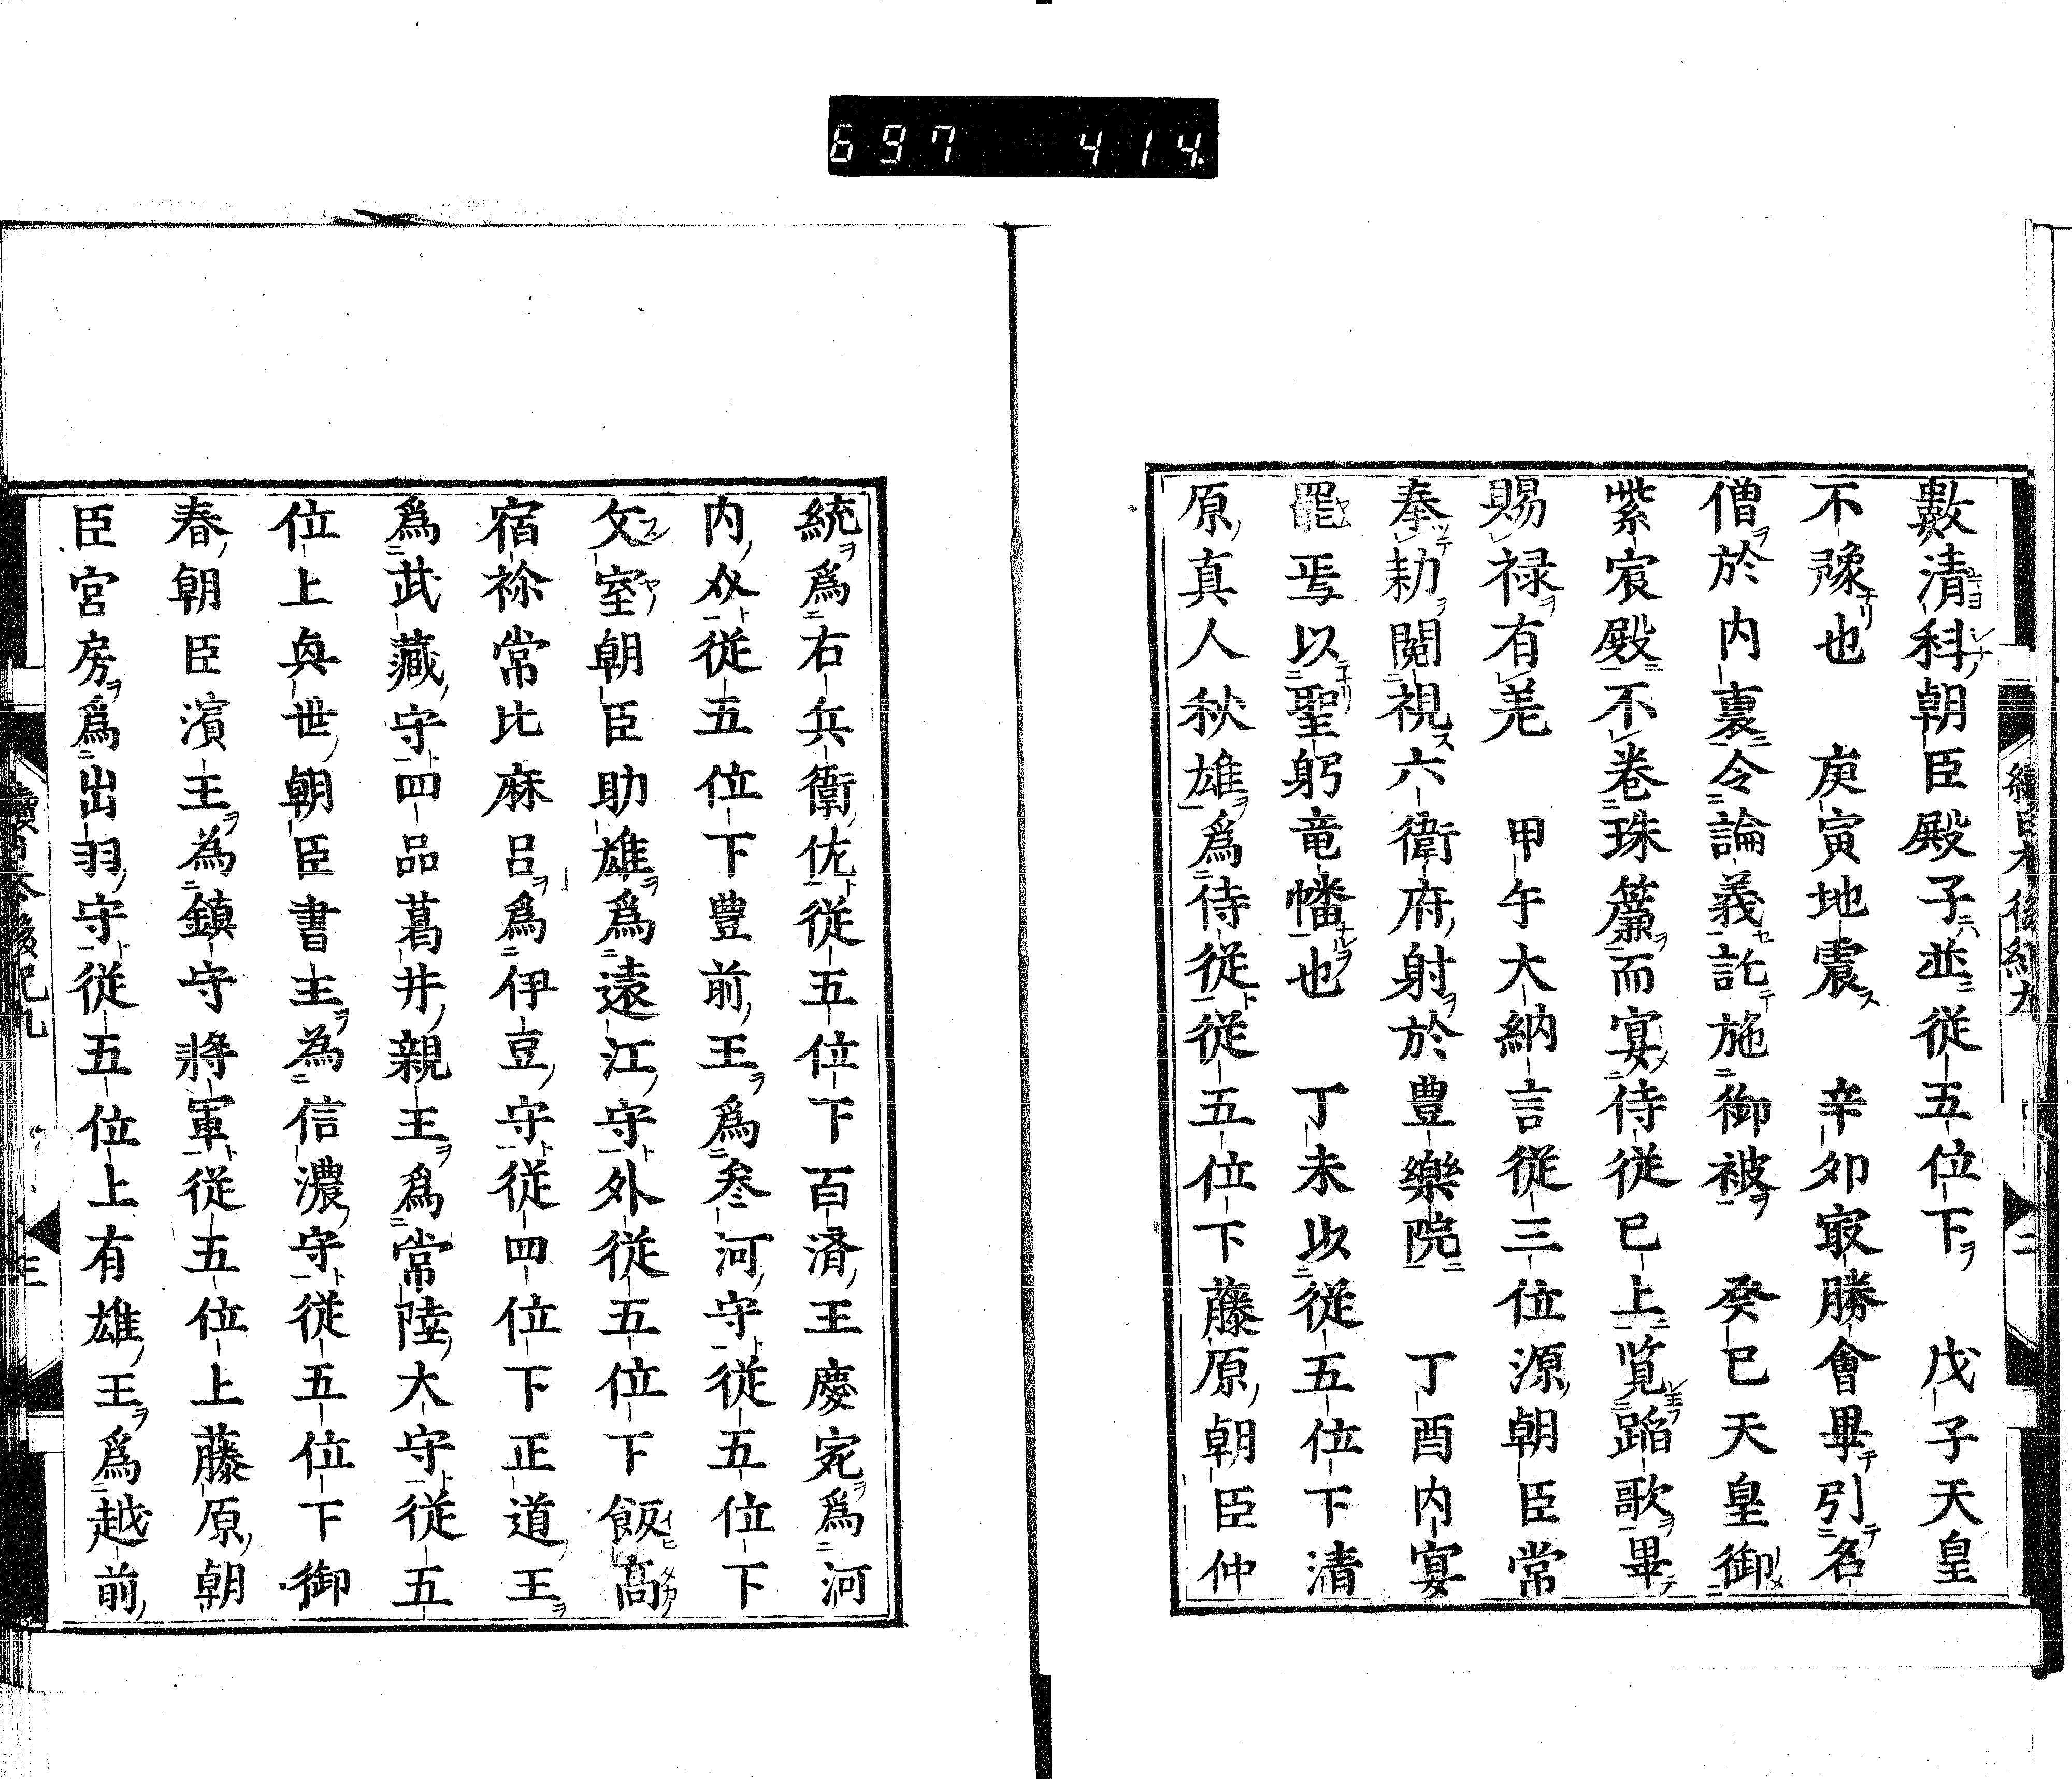 697 414.
數清科朝臣殿子並從五位下 戊子天皇
不豫也 庚寅地震 辛卯㝡勝會畢引名
僧於内裏令論義訖施御被 癸巳天皇御
紫宸殿不卷珠簾而宴侍從已上覧蹈歌畢
賜禄有差 甲午大納言從三位源朝臣常
奉勅閲視六衛府射於豊樂院 丁酉内宴
罷焉以聖躬竜幡也 丁未以從五位下清
原真人秋雄爲侍從從五位下藤原朝臣仲
統爲右兵衛佐從五位下百済王慶宛爲河
内介從五位下豊前王爲叅河守從五位下
文室朝臣助雄爲遠江守外從五位下飯髙
宿祢常比麻呂爲伊豆守從四位下正道王
爲武藏守四品葛井親王爲常陸大守從五
位上眞世朝臣書主為信濃守從五位下御
春朝臣濱主為鎮守將軍從五位上藤原朝
臣宮房爲出羽守從五位上有雄王爲越前
續日本後紀九
三